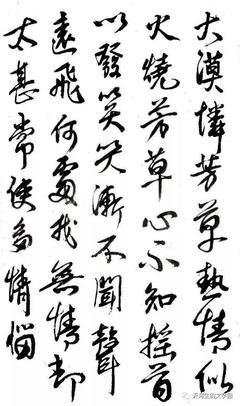 大漠憐芳草熱情似
火燒芳草心不知搖首
以發笑笑漸不聞聲
遠飛何處找無情却
太甚常使多情惱